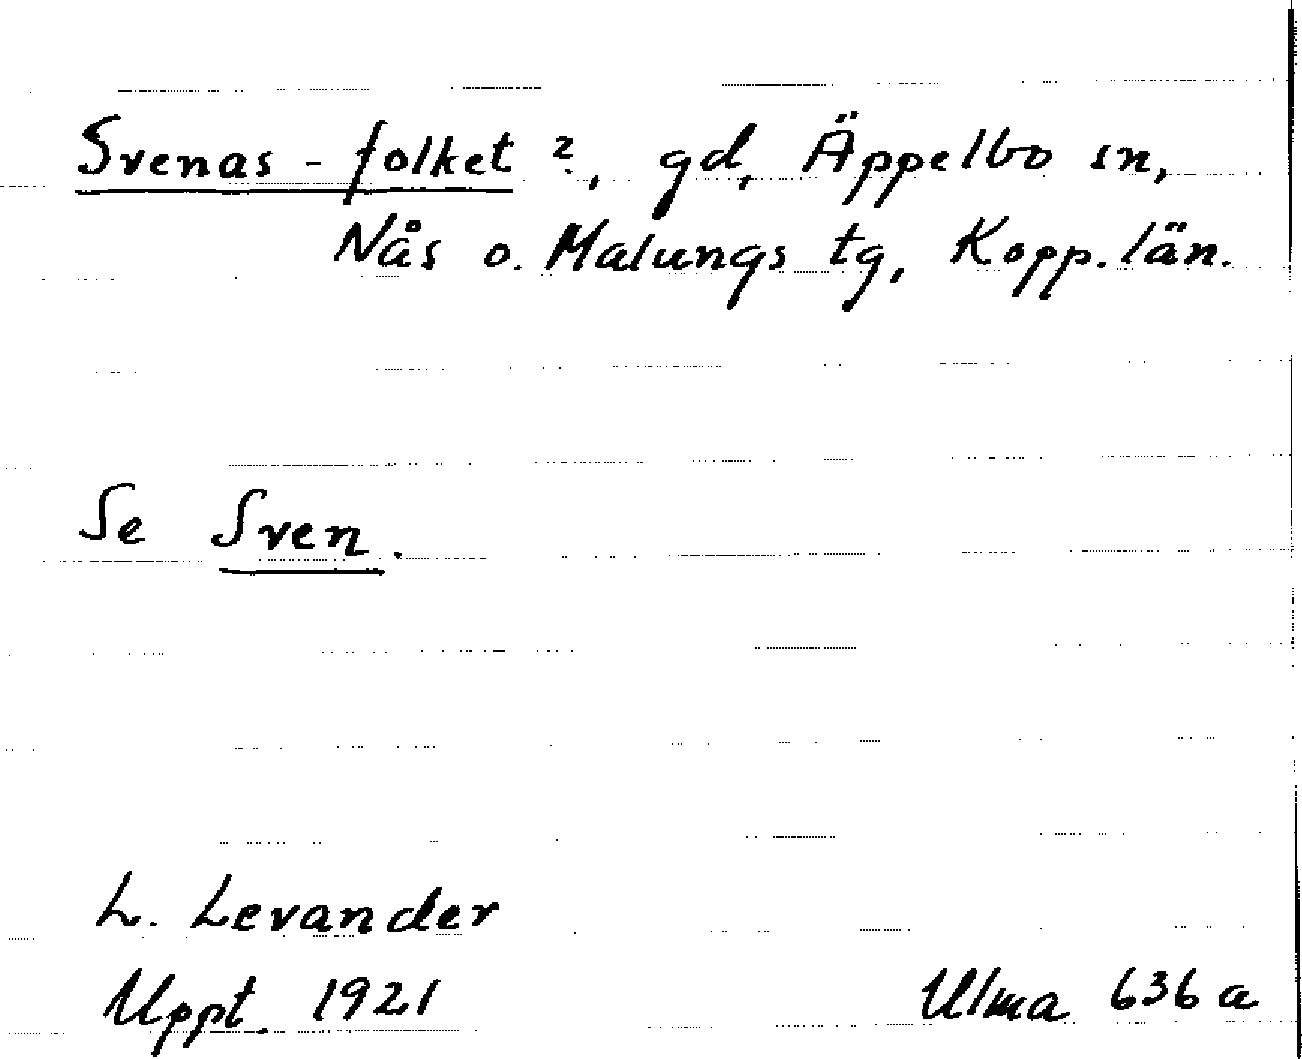 Svenas-folket ?, gd, Äppelbo sn,
Nås o. Malungs tg, Kopp. län.
Se Sven.
L. Levander
Uppt. 1921
Ulma 636 a